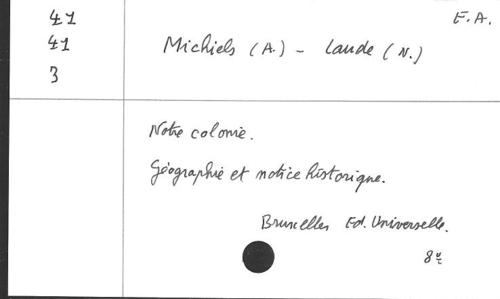 41
E.A.
41
Michiels (A.) - Laude (N.)
3
Notre colonie.
Géographie et notice historique.
Bruxelles Ed. Universelle.